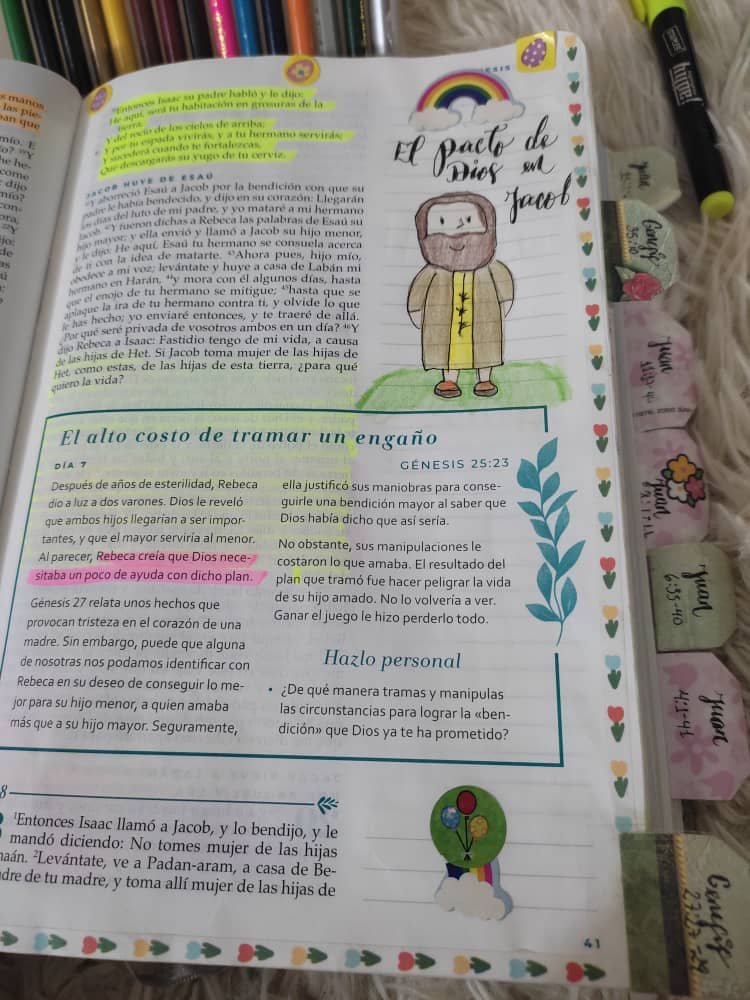 ESIS
s manos
las pie-
an que
mío. E
come
dijo
mío?
con-
ora,
jo:
de
as
³⁹Entonces Isaac su padre habló y le dijo:
He aquí, será tu habitación en grosuras de la
tierra,
Y del rocío de los cielos de arriba;
Y por tu espada vivirás, y a tu hermano servirás;
Y sucederá cuando te fortalezcas,
Que descargarás su yugo de tu cerviz.
JACOB HUYE DE ESAÚ
⁴¹Y aborreció Esaú a Jacob por la bendición con que su
padre le había bendecido, y dijo en su corazón: Llegarán
los días del luto de mi padre, y yo mataré a mi hermano
Jacob. ⁴²Y fueron dichas a Rebeca las palabras de Esaú su
hijo mayor; y ella envió y llamó a Jacob su hijo menor,
y le dijo: He aquí, Esaú tu hermano se consuela acerca
de ti con la idea de matarte. ⁴³Ahora pues, hijo mío,
obedece a mi voz; levántate y huye a casa de Labán mi
hermano en Harán, ⁴⁴y mora con él algunos días, hasta
que el enojo de tu hermano se mitigue; ⁴⁵hasta que se
aplaque la ira de tu hermano contra ti, y olvide lo que
le has hecho; yo enviaré entonces, y te traeré de allá.
¿Por qué seré privada de vosotros ambos en un día? ⁴⁶Y
dijo Rebeca a Isaac: Fastidio tengo de mi vida, a causa
de las hijas de Het. Si Jacob toma mujer de las hijas de
Het, como estas, de las hijas de esta tierra, ¿para qué
quiero la vida?
El pacto de
Dios en
Jacob
El alto costo de tramar un engaño
DÍA 7
GÉNESIS 25:23
Después de años de esterilidad, Rebeca
dio a luz a dos varones. Dios le reveló
que ambos hijos llegarían a ser impor-
tantes, y que el mayor serviría al menor.
Al parecer, Rebeca creía que Dios nece-
sitaba un poco de ayuda con dicho plan.
Génesis 27 relata unos hechos que
provocan tristeza en el corazón de una
madre. Sin embargo, puede que alguna
de nosotras nos podamos identificar con
Rebeca en su deseo de conseguir lo me-
jor para su hijo menor, a quien amaba
más que a su hijo mayor. Seguramente,
ella justificó sus maniobras para conse-
guirle una bendición mayor al saber que
Dios había dicho que así sería.
No obstante, sus manipulaciones le
costaron lo que amaba. El resultado del
plan que tramó fue hacer peligrar la vida
de su hijo amado. No lo volvería a ver.
Ganar el juego le hizo perderlo todo.
Hazlo personal
• ¿De qué manera tramas y manipulas
las circunstancias para lograr la «ben-
dición» que Dios ya te ha prometido?
8
¹Entonces Isaac llamó a Jacob, y lo bendijo, y le
mandó diciendo: No tomes mujer de las hijas
naán. ²Levántate, ve a Padan-aram, a casa de Be-
dre de tu madre, y toma allí mujer de las hijas de
41
Juan
Juan
Juan
Juan
6:35-40
Juan
4:1-41